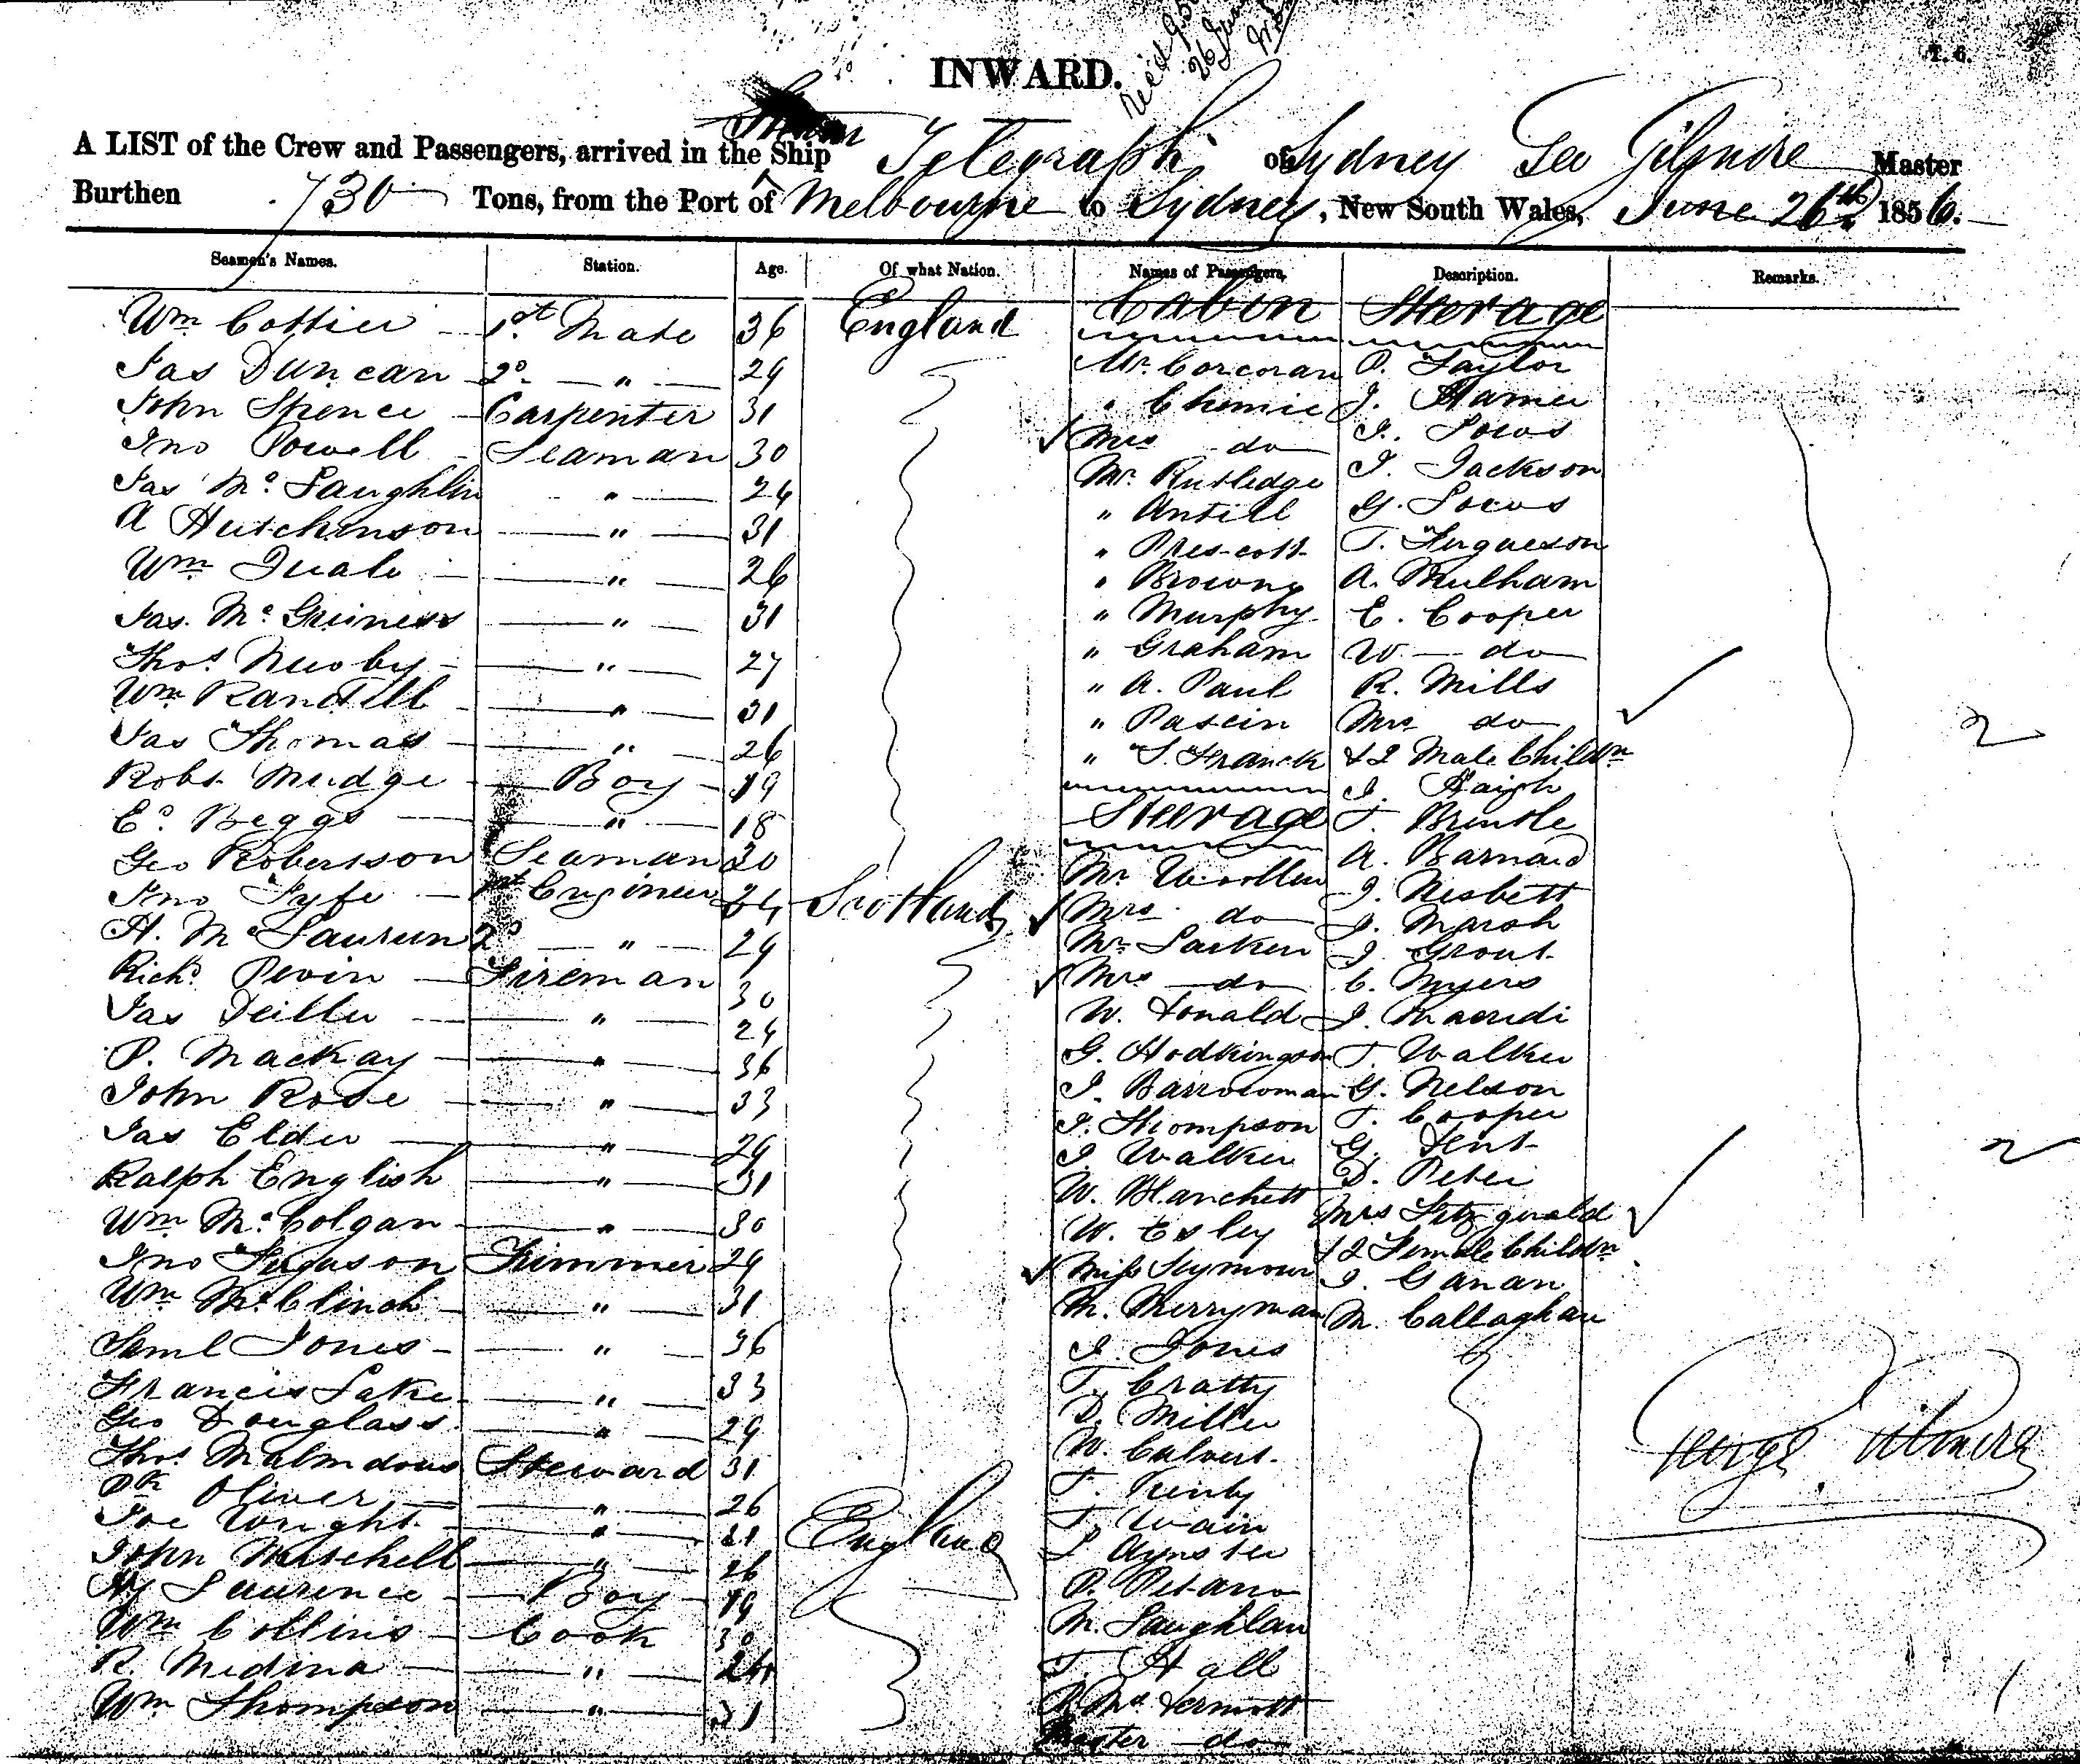 T. 6.
INWARD.
Steam
A LIST of the Crew and Passengers, arrived in the Ship Telegraph of Sydney Geo Gilmore Master
Burthen 730 Tons, from the Port of Melbourne to Sydney, New South Wales, June 26th 1856.
Seamen's Names. Station. Age. Of what Nation. Names of Passengers. Description. Remarks.
Wm Cottier 1st Mate 36 England Cabin Steerage
Jas Duncan 2o " 29 Mr Corcoran P. Taylor
John Spence Carpenter 31 " Chemie J. Hamer
Jno Powell Seaman 30 Mrs do J. Sows
Jas Mc Laughlin " 24 Mr Rutledge J. Jackson
A Hutchinson " 31 " Antill G. Sows
Wm Quale " 26 " Prescott T. Fergueson
Jas. Mc Guiness " 31 " Browne A. Mulham
Thos Newby " 27 " Murphy E. Cooper
Wm Randell " 31 " Graham W. do
Jas Thomas " 26 " A. Paul R. Mills
Robt Mudge Boy 19 " Pascin Mrs do
Ed Beggs " 18 " S. Franck & 2 Male Childn
Geo Robertson Seaman 30 Steerage J. Haigh
Jno Fyfe 1st Engineer 34 Scotland Mr Woollen T. Brintle
H. Mc Lauren 2o " 29 Mrs do A. Barnard
Richd Pevin Fireman 30 Mr Larken J. Nesbett
Jas Deiller " 24 Mrs do J. Marsh
P. Mackay " 36 W. Donald J. Grout
John Rose " 33 G. Hodkingson C. Myers
Jas Elder " 29 J. Barrowman J. Macredi
Ralph English " 31 J. Thompson T. Walker
Wm Mc Colgan " 30 J. Walker G. Nelson
Jno Fuguson Trimmer 29 W. Blanchett T. Cooper
Wm McClinch " 31 W. Exley G. Dent
Saml Jones " 36 Miss Seymour D. Peter
Francis Lake " 33 M. Merryman Mrs Fitzgerald
Geo Douglass " 29 J. Jones & 2 Female Childn
Thos Steward 31 T. Cratty J. Ganan
Pk Oliver " 26 D. Miller M. Callaghan
Joe Wright " 21 England W. Calvert
John Mitchell " 26 T.
Hy Laurence Boy 19 T. Wain
Wm Collins Cook 30 P. Petano
R. Medina " 24 M. Laughlan
Wm Thompson " 31 T. Hall
P. Mc Dermott
Master do
George Gilmore